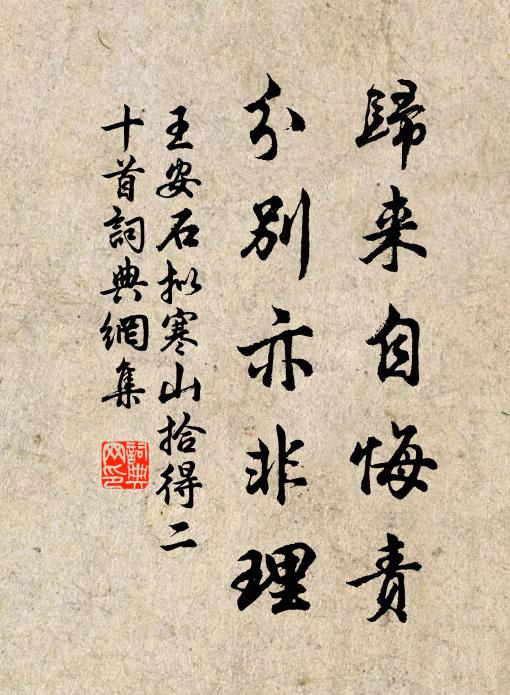 歸来自悔责
分别亦非理
王安石拟寒山拾得二
十首詞典網集
詞典
网印